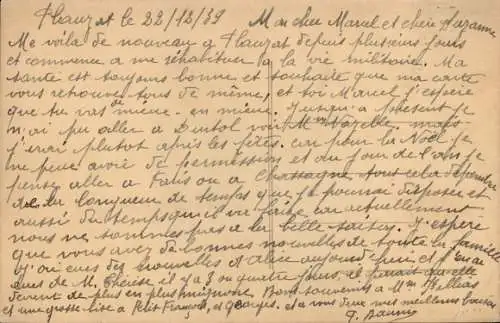 Flauzat le 22/12/39 Mon cher Marcel et chère Suzanne
Me voilà de nouveau a Flauzat depuis plusieurs jours
et commence a me rehabituer a la vie militaire. Ma
santé est toujours bonne et souhaite que ma carte
vous retrouve tous de même, et toi Marcel j'espère
que tu vas de mieux en mieux. Jusqu'a présent je
n'ai pu aller a voir Mme mais
j'irai plutot après les fêtes. car pour la Noël je
ne peux avoir de permission et au jour de l'an je
pense aller a Paris ou a Chassagne tout cela dépendra
de la longueur de temps que je pourrai disposer et
aussi du temps qu'il va faire car actuellement
nous ne sommes pas a la belle saison. J'espère
que vous avez de bonnes nouvelles de toute la famille
j'ai eu des nouvelles d'Alice aujourd'hui et j'en ai
eues de M. Thérèse il y a 3 ou quatre jours, il parait qu'elle
devient de plus en plus mignonne. Bons souvenirs a Mme
et une grosse bise a Petit François, et Georges. et a vous deux mes meilleurs baisers